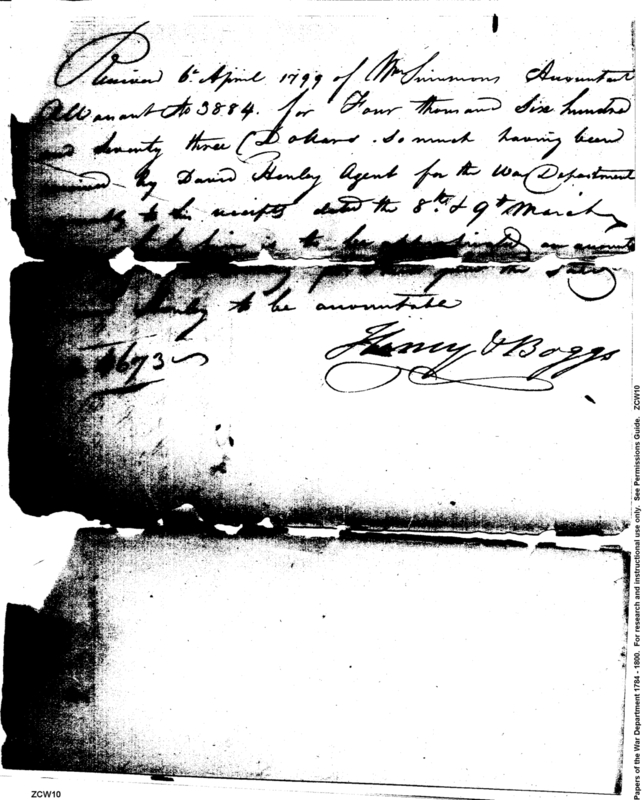 Received 6th April 1799 of Wm Simmons Accountant
Warrant No 3884. for Four thousand Six hundred
and Seventy three Dollars. so much having been
received by David Henley Agent for the War Department
to his receipts dated the 8th & 9th March
is to be appropriated on account
the said
Henley to be accountable
4673
Haney & Boggs
Papers of the War Department 1784 - 1800. For research and instructional use only. See Permissions Guide. ZCW10
ZCW10